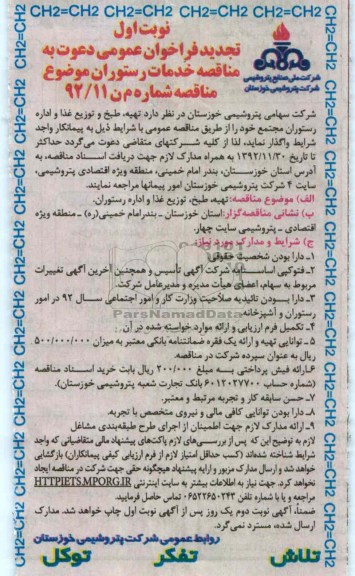 نوبت اول
تجدید فراخوان عمومی دعوت به
مناقصه خدمات رستوران موضوع
مناقصه شماره م ن ۹۲/۱۱
شرکت ملی صنایع پتروشیمی
شرکت پتروشیمی خوزستان
شرکت سهامی پتروشیمی خوزستان در نظر دارد تهیه، طبخ و توزیع غذا و اداره
رستوران مجتمع خود را از طریق مناقصه عمومی با شرایط ذیل به پیمانکار واجد
شرایط واگذار نماید، لذا از کلیه شرکتهای متقاضی دعوت می‌گردد حداکثر
تا تاریخ ۱۳۹۲/۱۱/۳۰ به همراه مدارک لازم جهت دریافت اسناد مناقصه، به
آدرس استان خوزستان، بندر امام خمینی، منطقه ویژه اقتصادی پتروشیمی،
سایت ۴ شرکت پتروشیمی خوزستان امور پیمانها مراجعه نمایند.
الف) موضوع مناقصه: تهیه، طبخ، توزیع غذا و اداره رستوران.
ب) نشانی مناقصه‌گزار: استان خوزستان ـ بندرامام خمینی(ره) ـ منطقه ویژه
اقتصادی ـ پتروشیمی سایت چهار.
ج) شرایط و مدارک مورد نیاز:
۱ـ دارا بودن شخصیت حقوقی
۲ـ فتوکپی اساسنامه شرکت آگهی تأسیس و همچنین آخرین آگهی تغییرات
مربوط به سهام، اعضای هیأت مدیره و مدیرعامل شرکت.
۳ـ دارا بودن تائیدیه صلاحیت وزارت کار و امور اجتماعی سال ۹۲ در امور
رستوران و آشپزخانه.
۴ـ تکمیل فرم ارزیابی و ارائه موارد خواسته شده در آن.
۵ـ توانایی تهیه و ارائه یک فقره ضمانتنامه بانکی معتبر به میزان ۵۰۰/۰۰۰/۰۰۰
ریال به عنوان سپرده شرکت در مناقصه.
۶ـ ارائه فیش پرداختی به مبلغ ۲۰۰/۰۰۰ ریال بابت خرید اسناد مناقصه
(شماره حساب ۶۰۱۲۰۲۷۷۰۰ بانک تجارت شعبه پتروشیمی خوزستان).
۷ـ حسن سابقه کار و تجربه مرتبط و معتبر.
۸ـ دارا بودن توانایی کافی مالی و نیروی متخصص با تجربه.
۹ـ ارائه مدارک لازم جهت اطمینان از اجرای طرح طبقه‌بندی مشاغل
لازم به توضیح این که پس از بررسی‌های لازم پاکت‌های پیشنهاد مالی متقاضیانی که واجد
شرایط شناخته شده‌اند (کسب حداقل امتیاز لازم از فرم ارزیابی کیفی پیمانکاران) بازگشایی
خواهد شد و ارسال مدارک مزبور و ارایه پیشنهاد هیچگونه حقی جهت شرکت در مناقصه ایجاد
نخواهد کرد. جهت نیاز به اطلاعات بیشتر به سایت اینترنتی HTTP://IETS.MPORG.IR
مراجعه و یا با شماره تلفن ۰۶۵۲۲۶۵۰۲۴۳ تماس حاصل فرمایید.
ضمناً، آگهی نوبت دوم یک روز پس از آگهی نوبت اول چاپ خواهد شد. مدارک
ارسال شده، مسترد نمی‌گردد.
روابط عمومی شرکت پتروشیمی خوزستان
تلاش تفکر توکل
ParsNamadData